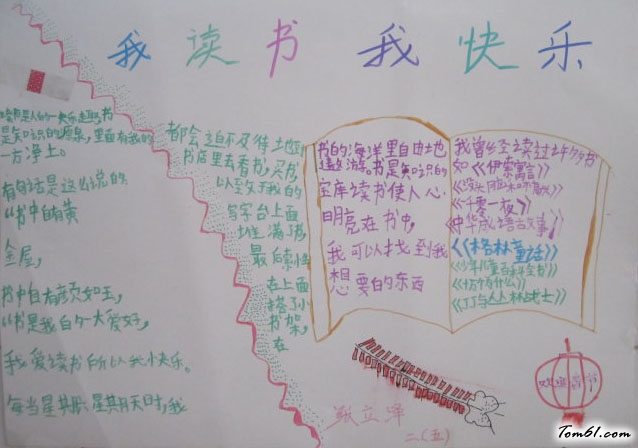 我读书 我快乐
书是人的一大快乐趣书
是知识的源泉，里面有我的
一方净土。
有句话是这么说的
“书中自有黄
金屋，
书中自有颜如玉，
“书是我的一大爱好，
我爱读书所以我快乐。
每当星期六星期天时，我
都会迫不及待地到
书店里去看书，买书
以至于我的
写字台上面
堆满了书，
最后索性
在上面
搭了小
书架，
在
书的海洋里自由地
遨游。书是知识的
宝库读书使人心
明亮在书中，
我可以找到我
想要的东西
我曾经读过许多书
如《伊索寓言》
《一千零一夜》
《中华成语故事》
《格林童话》
《少年儿童百科全书》
《十万个为什么》
《丁丁与丛林战士》
立泽
二(五)
欢度春节
Tom61.com